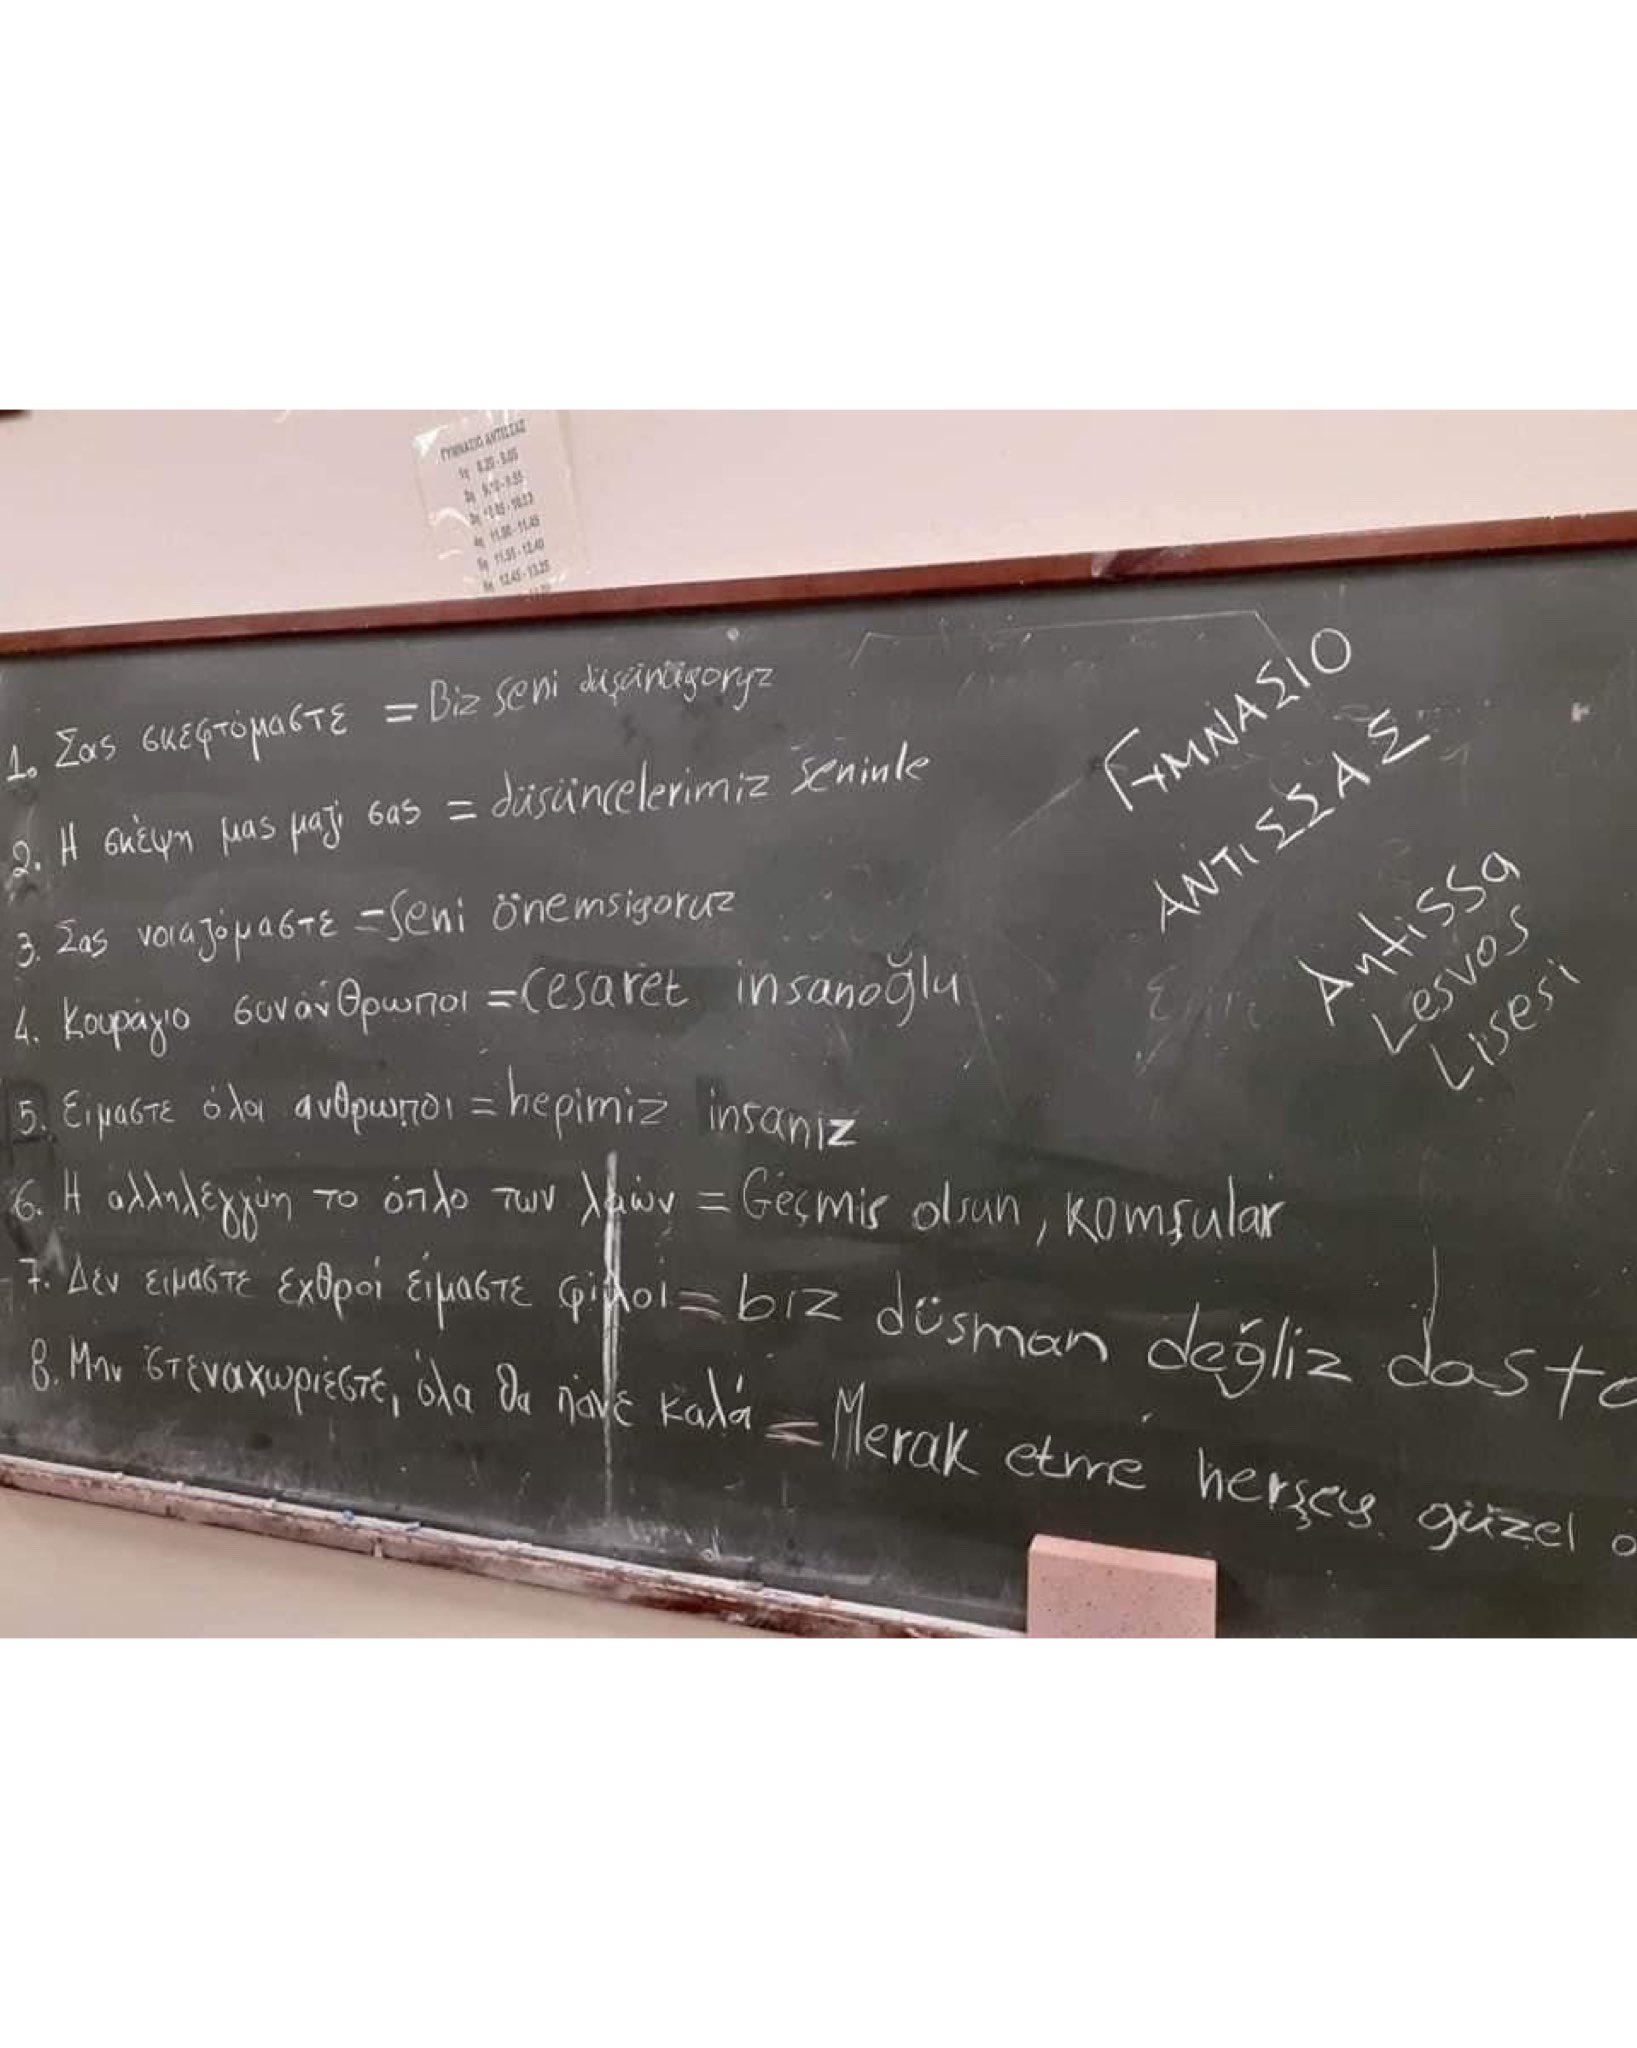 ΓΥΜΝΑΣΙΟ ΑΝΤΙΣΣΑΣ
1. Σας σκεφτόμαστε = Biz seni düşünügoryz
2. Η σκέψη μας μαζί σας = düsüncelerimiz seninle
3. Σας νοιαζόμαστε = Seni önemsigoruz
4. Κουράγιο συνάνθρωποι = Cesaret insanoğlu
5. Ειμαστε όλοι ανθρωποι = hepimiz insanız
6. Η αλληλεγγύη το όπλο των λαών = Geçmis olsun, komşular
7. Δεν ειμαστε εχθροί είμαστε φίλοι = biz düsman değliz dosto
8. Μην στεναχωριέστε, όλα θα πάνε καλά = Merak etme herşey güzel o
ΓΥΜΝΑΣΙΟ
ΑΝΤΙΣΣΑΣ
Antissa
Lesvos
Lisesi